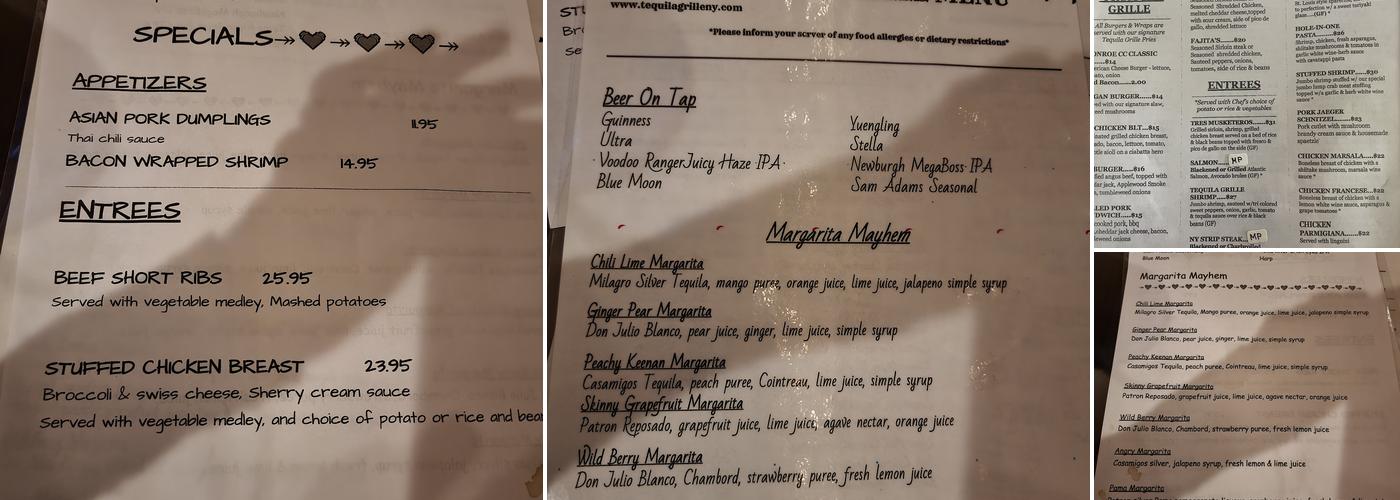 SPECIALS
APPETIZERS
ASIAN PORK DUMPLINGS 11.95
Thai chili sauce
BACON WRAPPED SHRIMP 14.95
ENTREES
BEEF SHORT RIBS 25.95
Served with vegetable medley, Mashed potatoes
STUFFED CHICKEN BREAST 23.95
Broccoli & swiss cheese, Sherry cream sauce
Served with vegetable medley, and choice of potato or rice and bean
www.tequilagrilleny.com
MENU
*Please inform your server of any food allergies or dietary restrictions*
Beer On Tap
Guinness Yuengling
Ultra Stella
Voodoo RangerJuicy Haze IPA Newburgh MegaBoss IPA
Blue Moon Sam Adams Seasonal
Margarita Mayhem
Chili Lime Margarita
Milagro Silver Tequila, mango puree, orange juice, lime juice, jalapeno simple syrup
Ginger Pear Margarita
Don Julio Blanco, pear juice, ginger, lime juice, simple syrup
Peachy Keenan Margarita
Casamigos Tequila, peach puree, Cointreau, lime juice, simple syrup
Skinny Grapefruit Margarita
Patron Reposado, grapefruit juice, lime juice, agave nectar, orange juice
Wild Berry Margarita
Don Julio Blanco, Chambord, strawberry puree, fresh lemon juice
GRILLE
All Burgers & Wraps are
served with our signature
Tequila Grille Fries
NROE CC CLASSIC
.....$14
erican Cheese Burger - lettuce,
ato, onion
d Bacon.....2.00
GAN BURGER.....$14
ed with our signature slaw,
ed mushrooms
CHICKEN BLT...$15
ado, bacon, lettuce, tomato,
tle aioli on a ciabatta hero
BURGER.....$16
fed angus beef, topped with
dar jack, Applewood Smoke
, tumbleweed onions
LED PORK
DWICH.....$15
cooked pork, bbq
heddar jack cheese, bacon,
weed onions
Seasoned Shredded Chicken,
melted cheddar cheese,topped
with sour cream, side of pico de
gallo, shredded lettuce
FAJITA'S.....$20
Seasoned Sirloin steak or
Seasoned shredded chicken,
Sauteed peppers, onions,
tomatoes, side of rice & beans
ENTREES
*Served with Chef's choice of
potato or rice & vegetables
TRES MUSKETEROS.....$31
Grilled sirloin, shrimp, grilled
chicken breast served on a bed of rice
& black beans topped with fresco &
pico de gallo on the side (GF)
SALMON..... MP
Blackened or Grilled Atlantic
Salmon, Avocado brulee (GF) *
TEQUILA GRILLE
SHRIMP.....$27
Jumbo shrimp, sauteed w/tri colored
sweet peppers, onion, garlic, tomato
& tequila sauce over rice & black
beans (GF)
NY STRIP STEAK... MP
Blackened or Charbroiled
St. Louis style
to perfection w/ a sweet teriyaki
glaze....(GF) *
HOLE-IN-ONE
PASTA.....$26
Shrimp, chicken, fresh asparagus,
shiitake mushrooms & tomatoes in
garlic white wine-herb sauce
with cavatappi pasta
STUFFED SHRIMP.....$30
Jumbo shrimp stuffed w/ our special
jumbo lump crab meat stuffing
topped w/a garlic & herb white wine
sauce *
PORK JAEGER
SCHNITZEL.....$23
Pork cutlet with mushroom
brandy cream sauce & housemade
spaetzle
CHICKEN MARSALA.....$22
Boneless breast of chicken with a
shiitake mushroom, marsala wine
sauce *
CHICKEN FRANCESE...$22
Boneless breast of chicken with a
lemon white wine sauce, asparagus &
grape tomatoes *
CHICKEN
PARMIGIANA.....$22
Served with linguini
Blue Moon Harp
Margarita Mayhem
Chili Lime Margarita
Milagro Silver Tequila, Mango puree, orange juice, lime juice, jalapeno simple syrup
Ginger Pear Margarita
Don Julio Blanco, pear juice, ginger, lime juice, simple syrup
Peachy Keenan Margarita
Casamigos Tequila, peach puree, Cointreau, lime juice, simple syrup
Skinny Grapefruit Margarita
Patron Reposado, grapefruit juice, lime juice, agave nectar, orange juice
Wild Berry Margarita
Don Julio Blanco, Chambord, strawberry puree, fresh lemon juice
Angry Margarita
Casamigos silver, jalapeno syrup, fresh lemon & lime juice
Pama Margarita